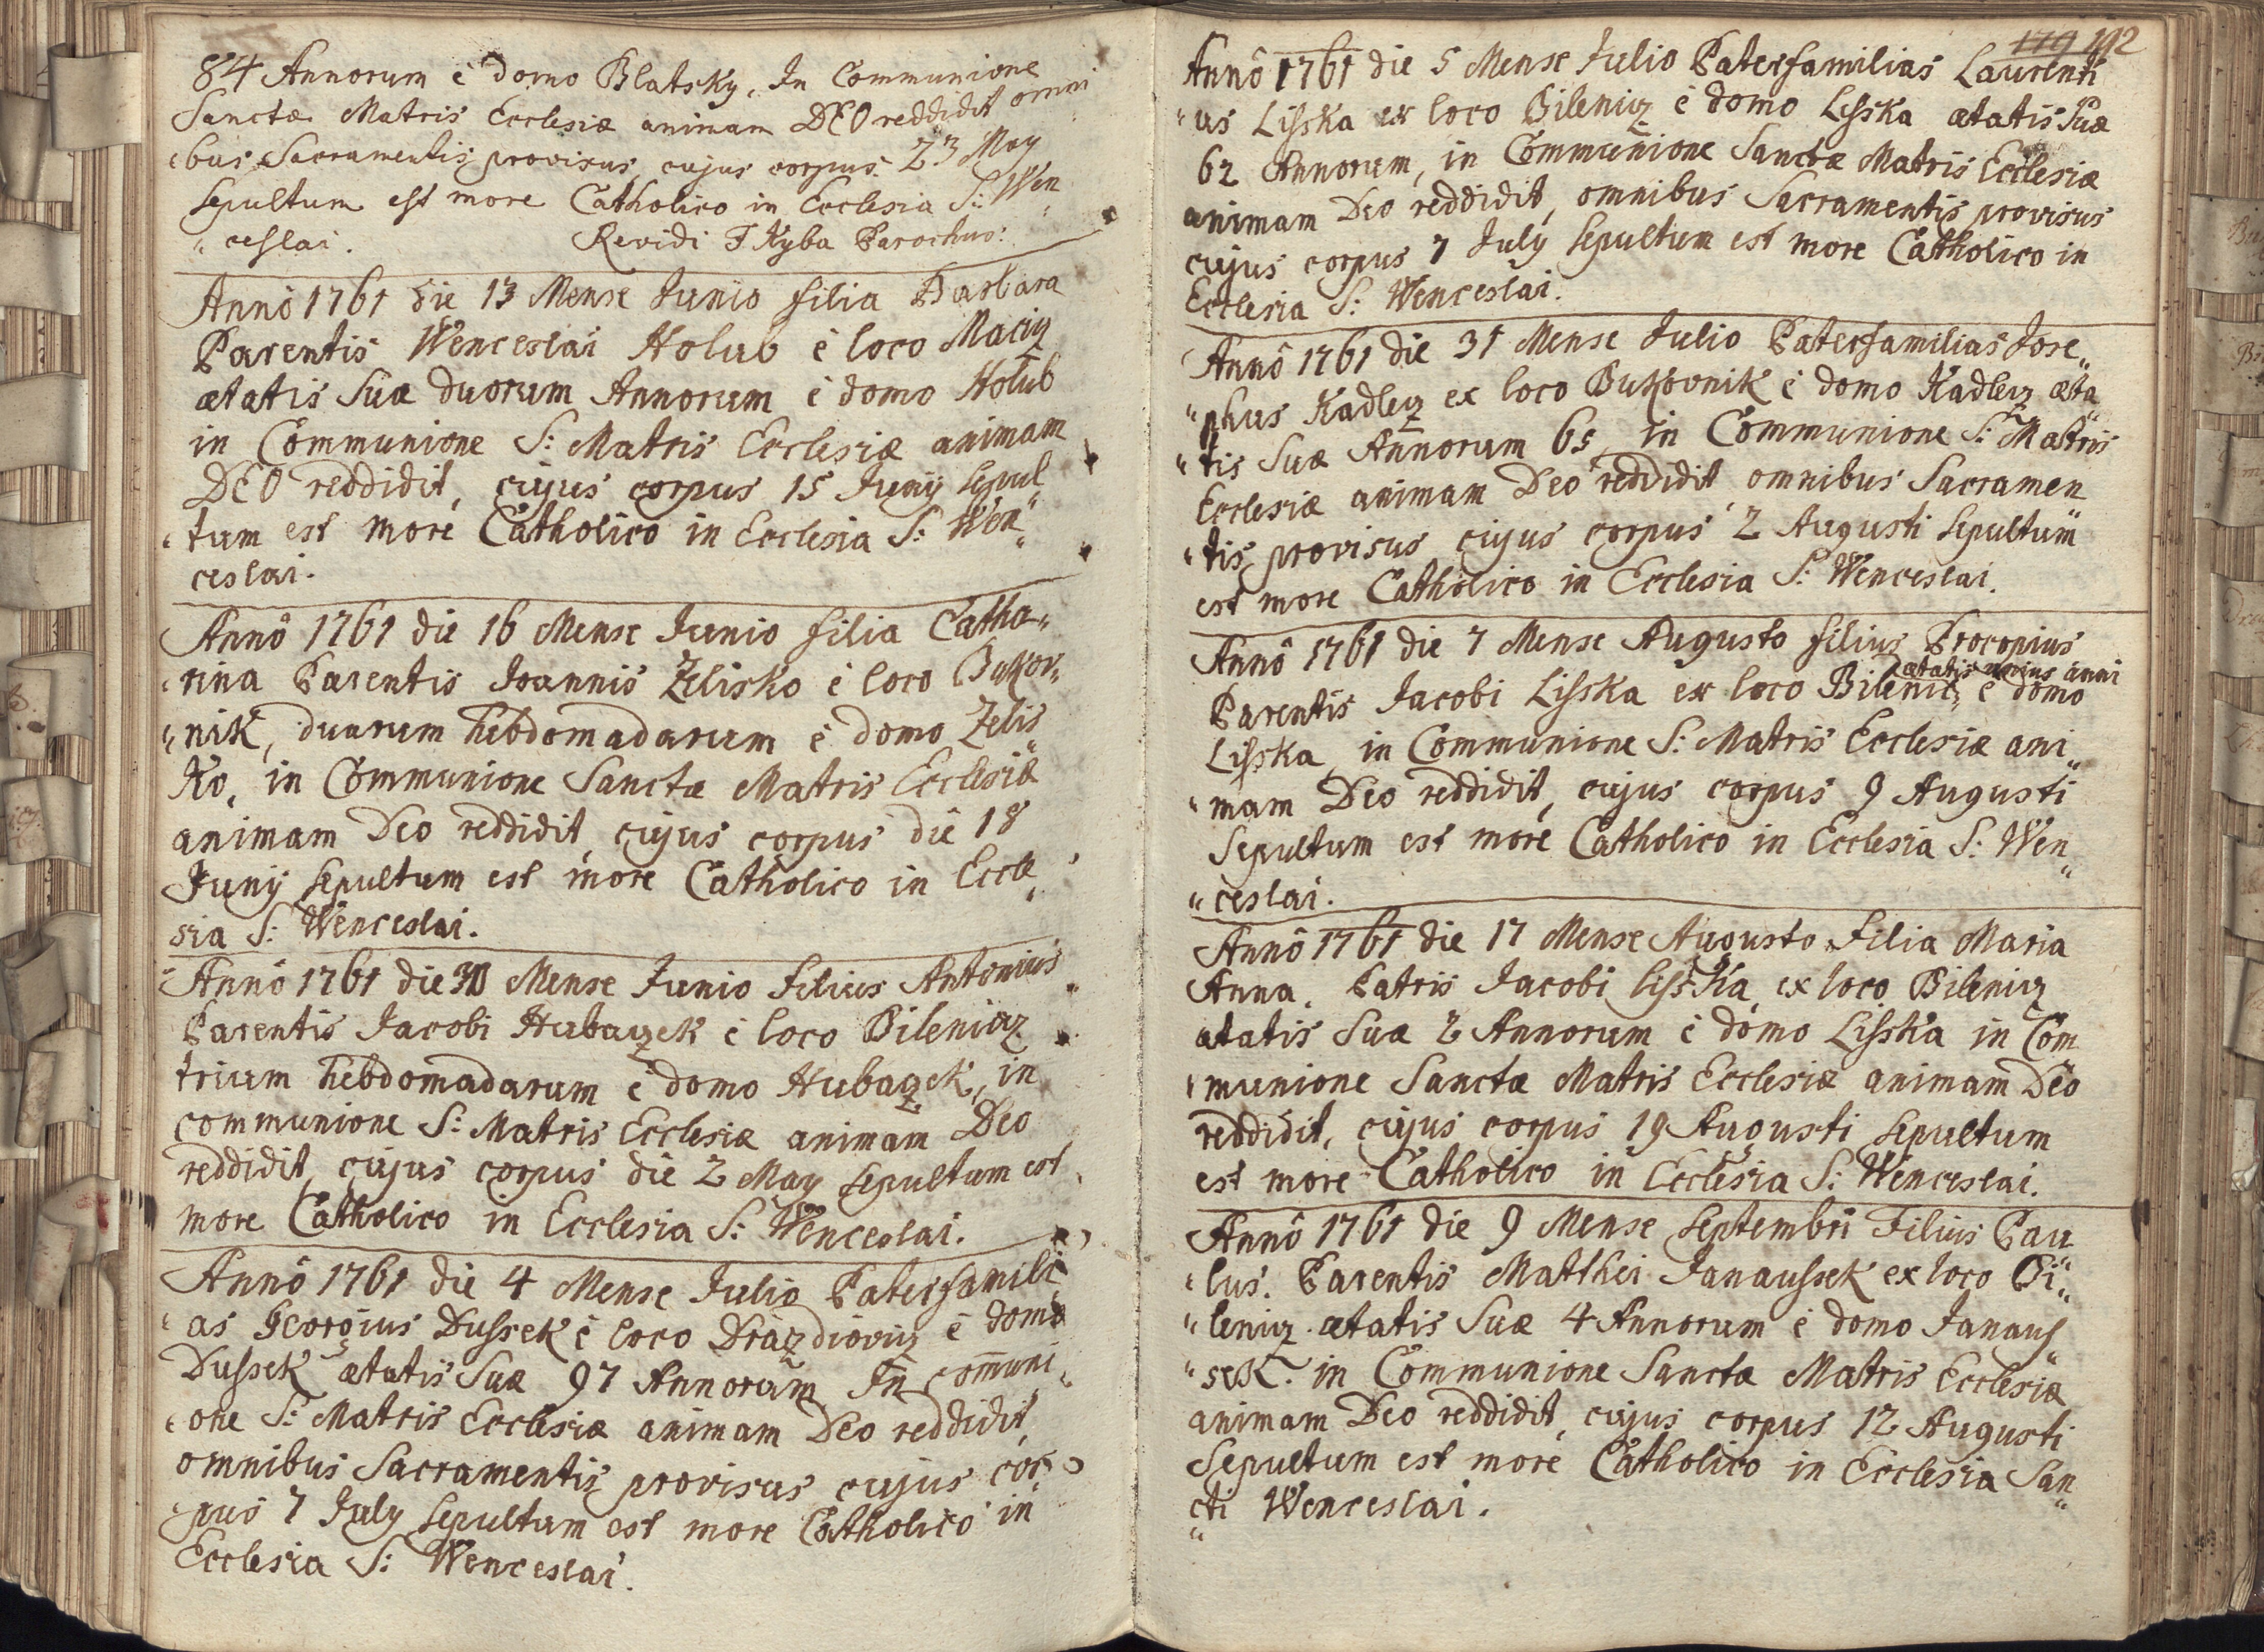 84 Annorum è domo Blatsky, In Communione
Sanctæ Matris Ecclesiæ animam DEO reddidit omni
bus Sacramentis provisus, cujus corpus 23 May
Sepultum est more Catholico in Ecclesia S: Wen„
„ceslai. Revidi F Kyba Parochus.
Annô 1761 die 13 Mense Junio filia Barbara
Parentis Wenceslai Holub è loco Maciz
ætatis Suæ duorum Annorum è domo Holub
in Communione S: Matris Ecclesiæ animam
DEO reddidit, cujus corpus 15 Junij Sepul„
tum est more Catholico in Ecclesia S: Wen„
ceslai.
Annô 1761 die 16 Mense Junio filia Catha„
rina Parentis Joannis Zelisko è loco Bukov„
„nik, duarum hebdomadarum è domo Zelis„
Ko, in Communione Sanctæ Matris Ecclesiæ
animam Deo reddidit, cujus corpus die 18
Junij Sepultum est more Catholico in Eccle„
sia S: Wenceslai.
Annô 1761 die 30 Mense Junio Filius Antonius
Parentis Jacobi Hubaczek è loco Bilenicz
trium hebdomadarum è domo Hubaczek, in
communione S: Matris Ecclesiæ animam Deo
reddidit, cujus corpus die 2 May Sepultum est
more Catholico in Ecclesia S: Wenceslai.
Annô 1761 die 4 Mense Julio Paterfamili
as Georgius Dussek è loco Drazdiowiz è domo
Dussek ætatis Suæ 97 Annorum In com̄uni„
one S: Matris Ecclesiæ animam Deo reddidit,
omnibus Sacramentis provisus cujus cor„
pus 7 July Sepultum est more Catholico in
Ecclesia S: Wenceslai.
179 192
Annô 1761 die 5 Mense Julio Paterfamilias Laurenti
„us Lisska ex loco Bileniz è domo Lisska ætatis Suæ
62 Annorum, in Communione Sanctæ Matris Ecclesiæ
animam Deo reddidit, omnibus Sacramentis provisus
cujus corpus 7 July Sepultum est more Catholico in
Ecclesia S: Wenceslai.
Annô 1761 die 31 Mense Julio Paterfamilias Jose„
„phus Kadlez ex loco Bukovnik è domo Kadlez æta„
„tis Suæ Annorum 65, in Communione S: Matris
Ecclesiæ animam Deo reddidit omnibus Sacramen„
„tis provisus cujus corpus 2 Augusti Sepultum
est more Catholico in Ecclesia S: Wenceslai.
Annô 1761 die 7 Mense Augusto filius Procopius
ætatis unius anni
Parentis Jacobi Lisska ex loco Bileniz è domo
Lisska, in Communione S: Matris Ecclesiæ ani„
„mam Deo reddidit, cujus corpus 9 Augusti
Sepultum est more Catholico in Ecclesia S: Wen„
„ceslai.
Annô 1761 die 17 Mense Augusto Filia Maria
Anna. Patris Jacobi Lisska, ex loco Bileniz
ætatis Suæ 2 Annorum è domo Lisska in Com
munione Sanctæ Matris Ecclesiæ animam Deo
reddidit, cujus corpus 19 Augusti Sepultum
est more Catholico in Ecclesia S: Wenceslai.
Annô 1761 die 9 Mense Septembri Filius Pau„
„lus. Parentis Matthei Janaussek ex loco Bi„
„leniz. ætatis Suæ 4 Annorum è domo Janaus„
„sek. in Communione Sanctæ Matris Ecclesiæ
animam Deo reddidit, cujus corpus 12 Augusti
Sepultum est more Catholico in Ecclesia San„
cti Wenceslai.